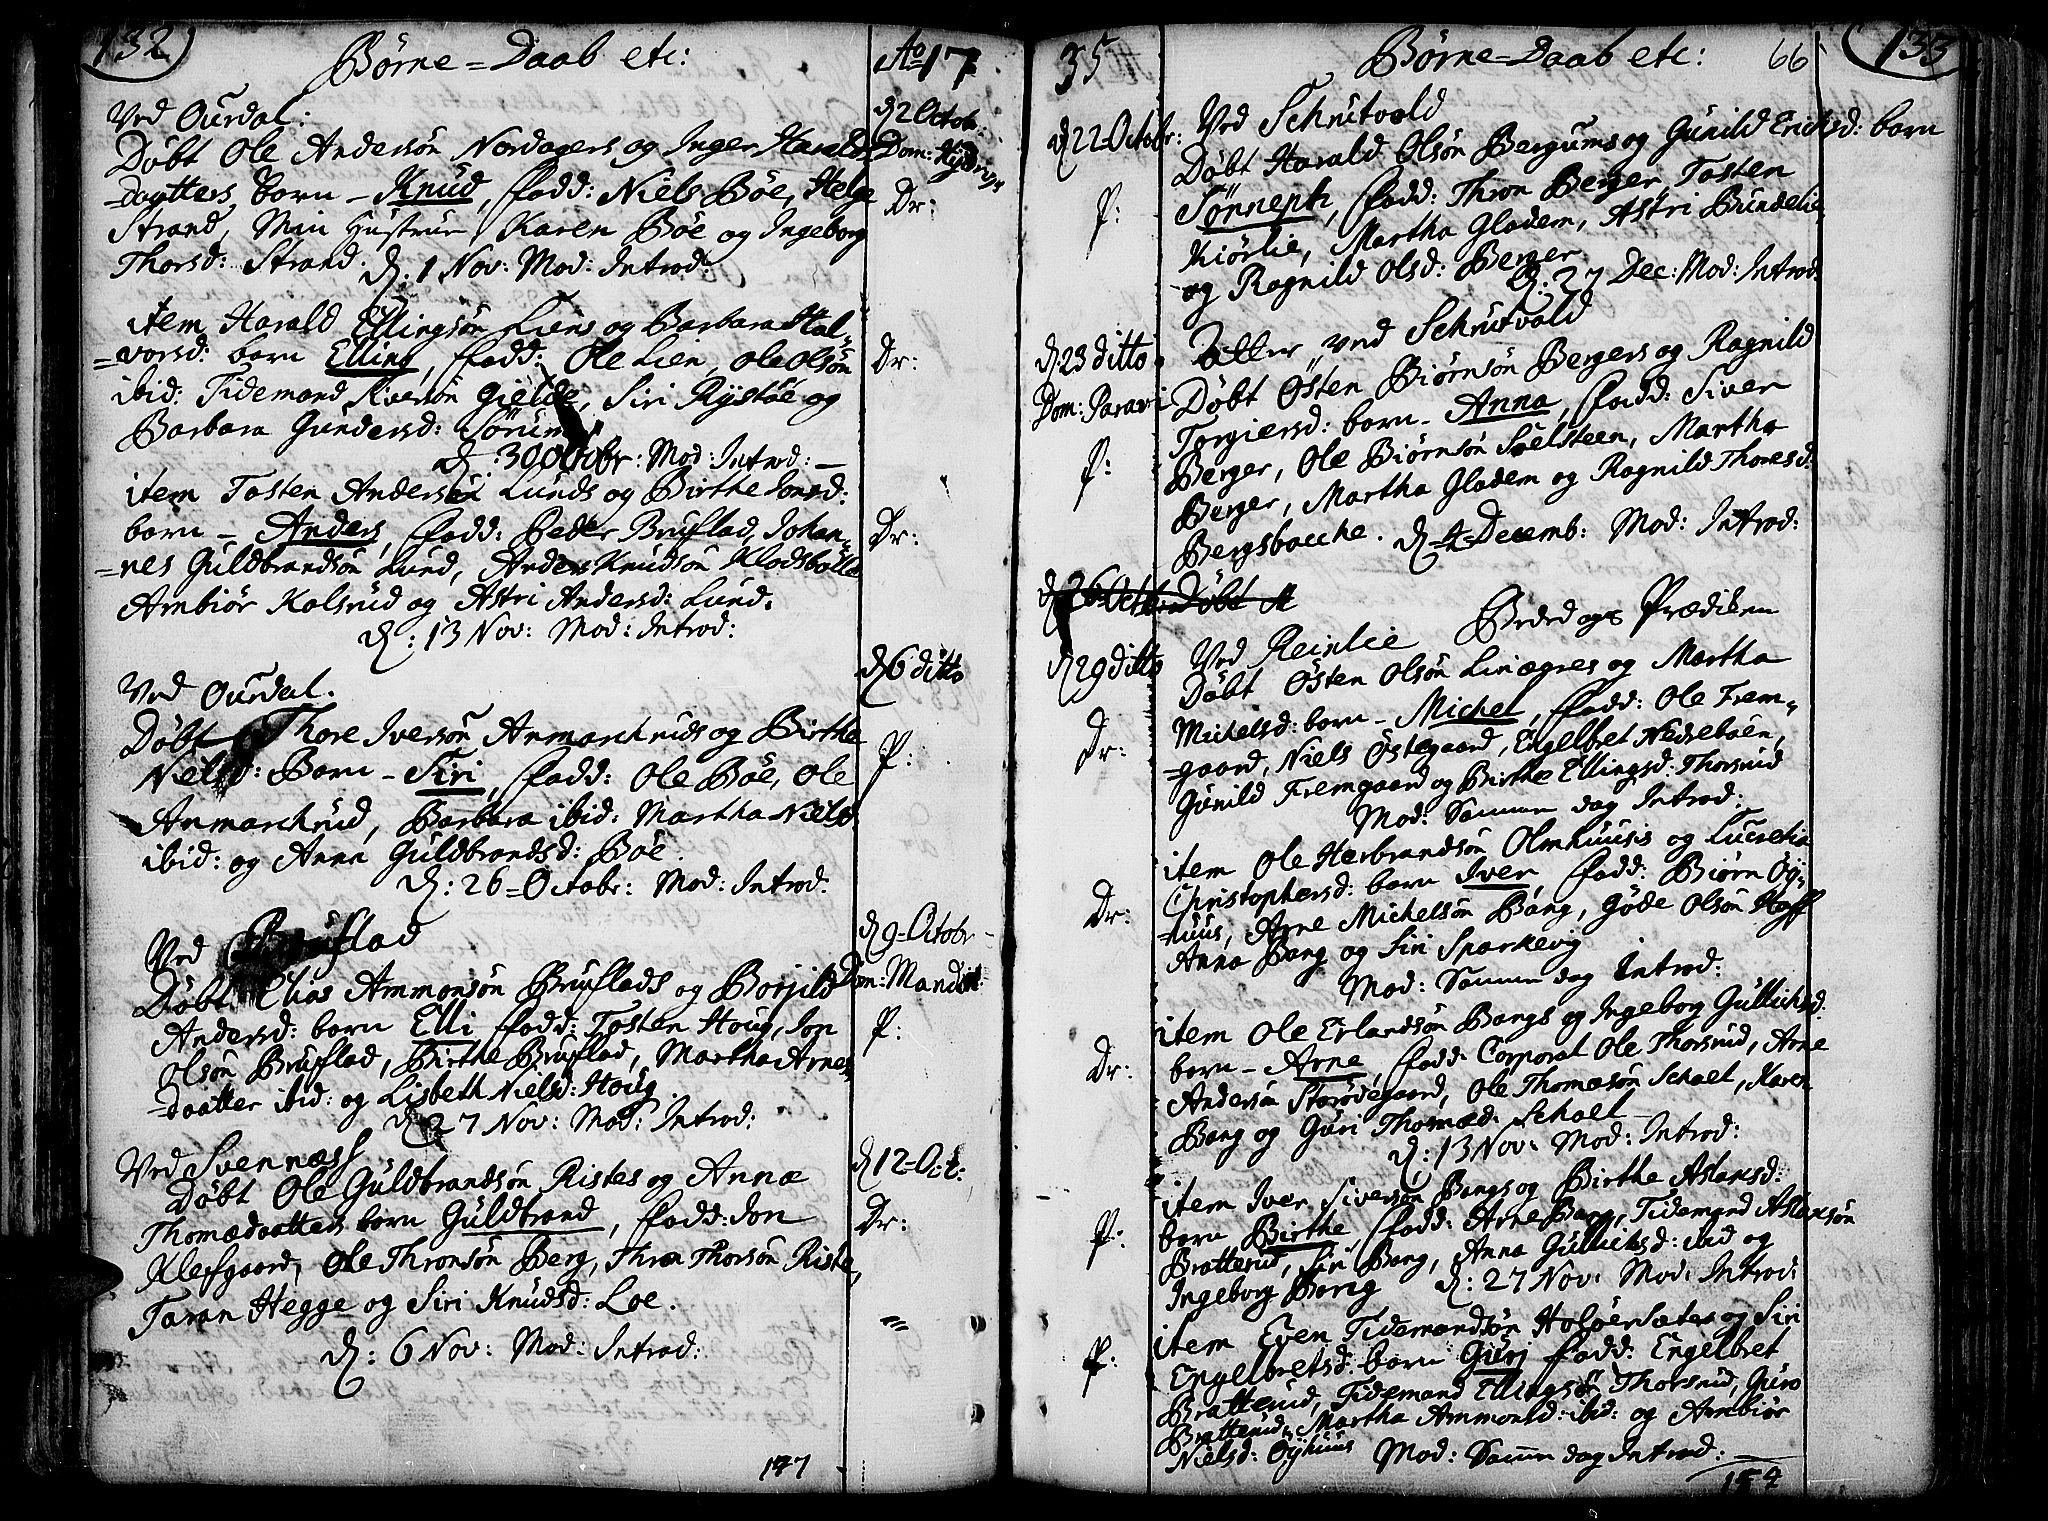 132
Børne=Daab etc: Ao 17
Ved Ourdal: d 2 Octobr:
Døbt Ole Andersøn Nordagers og Inger Harals Dom:
=daatters born – Knud, fadd: Niels Bøe, Helge Dr:
Strand, Min Hustrue Karen Bøe og Ingeborg
Thorsd: Strand. d: 1 Nov: Mod: Introd:
item Harald Ellingsøn Liens og Barbara Hal-
=vorsd: born Elling, fadd: Ole Lien, Ole Olsøn Dr:
ibid: Tidemand Iversøn Gielde, Siri Rÿstøe og
Barbara Gundersd: Sørum
d: 30 Octobr: Mod: Introd: –
item Tosten Andersøn Lunds og Birthe Jonsd:
born – Anders, fadd: Peder Bruflad, Johan- Dr:
=nes Guldbrandsøn Lund, Anders Knudsøn
Arnbiør Kolsrud og Astri Andersd: Lund.
d: 13 Nov: Mod: Introd:
Ved Ourdal. d 6 ditto
Døbt Thore Iversøn Anmarchruds og Birthe
Nielsd: Born – Siri, fadd: Ole Bøe, Ole P:
Anmarchrud, Barbara ibid: Martha Nielsd
ibid: og Anna Guldbrandsd: Bøe.
d: 26=Octobr: Mod: Introd.
Ved Bruflad d 9=Octobr
Døbt Elias Ammonsøn Bruflads og Borjild Dom:
Andersd: born Elli fadd: Tosten Houg, Jon P:
Olsøn Bruflad, Birthe Bruflad, Martha Arnes
=daatter ibid: og Lisbeth Nielsd: Houg
d 27 Nov: Mod: Introd:
Ved Svennæss d 12=Oct:
Døbt Ole Guldbrandsøn Ristes og Annæ
Thomædaatters born Guldbrand, fadd: Jon Dr:
Klefgaard, Ole Thronsøn Berg, Thron Thorsøn Riste,
Taran Hegge og Siri Knudsd: Loe.
d: 6 Nov: Mod: Introd:
147
35 Børne=Daab etc: 66 133
d 22=Octobr: Ved Schrutvold
Døbt Harald Olsøn Bergums og Gunild Ericksd: born
P: Sønneph, fadd: Thron Berger, Tosten
Kiørlie, Martha Gladem, Astri Bundelie
og Ragnild Olsd: Berger.
d: 27 Dec: Mod: Introd:
d 23 ditto ved Schrutvold
Dom: Døbt Østen Biørnsøn Bergers og Ragnild
Torgiersd: born – Anna, fadd: Siver
P: Berger, Ole Biørnsøn Soelsteen, Martha
Berger, Martha Gladem og Ragnild Thoresd:
Bergsbacche. d 4=Decemb: Mod: Introd:
d 26 Octobr Døbt A
Prædiken
d 29 ditto Ved Reinlie
Døbt Østen Olsøn Liniagres og Martha
Dr: Michelsd: born – Michel, fadd: Ole Frem-
=gaard, Niels Østegaard, Engelbret Nedrebøen,
Gunild Fremgaard og Birthe Ellingsd: Thorsrud
Mod: Samme dag Introd:
item Ole Herbrandsøn Olmhuusis og Lucretia
Dr: Christophersd: born Iver, fadd: Biørn Øÿ-
=huus, Arne Michelsøn Bang, Gøde Olsøn Hoff
Anna Bang og Siri Sparkevig
Mod: Samme dag Introd:
item Ole Erlandsøn Bangs og Ingeborg Gullichsd:
Dr: born – Arne, fadd: Corporal Ole Thorsrud, Arne
Andersøn Storødegaard, Ole Thomæsøn Schaet, Karen
Bang og Guri Thomæd: Schaet
d: 13 Nov: Mod: Introd:
item Iver Siversøn Bangs og Birthe Aslaksd:
P: born Birthe fadd: Arne Bang, Tidemand Aslaksøn
Bratterud, Siri Bang, Anna Gullichsd: ibid og
Ingeborg Bang d: 27 Nov: Mod: Introd:
item Even Tidemandsøn Holgersætes og Siri
P: Engelbretsd: born Guri fadd: Engelbret
Bratterud, Tidemand Ellingsøn Thorsrud, Guro
Bratterud, Martha Ammonsd: ibid: og Arnbiør
Nielsd: Øÿhuus Mod: Samme dag Introd: –
154